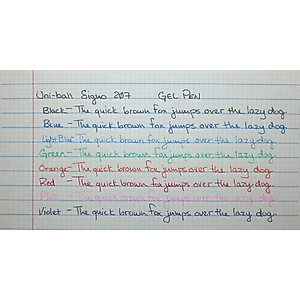 Uni-ball Signo 207 GEL PEN
Black - The quick brown fox jumps over the lazy dog.
Blue - The quick brown fox jumps over the lazy dog.
Light Blue - The quick brown fox jumps over the lazy dog.
Green - The quick brown fox jumps over the lazy dog.
Orange - The quick brown fox jumps over the lazy dog.
Red - The quick brown fox jumps over the lazy dog.
Pink - The quick brown fox jumps over the lazy dog.
Violet - The quick brown fox jumps over the lazy dog.